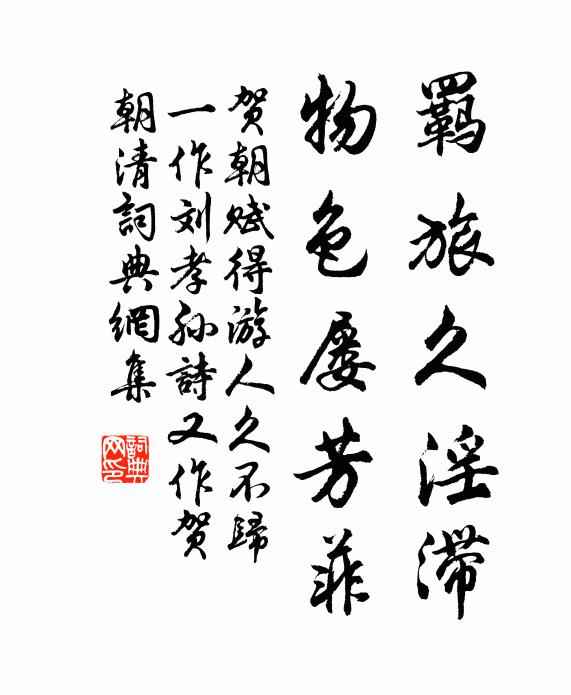 羁旅久淫滞
物色屡芳菲
贺朝赋得游人久不歸
一作刘孝孙詩又作贺
朝清詞典網集
詞典网印